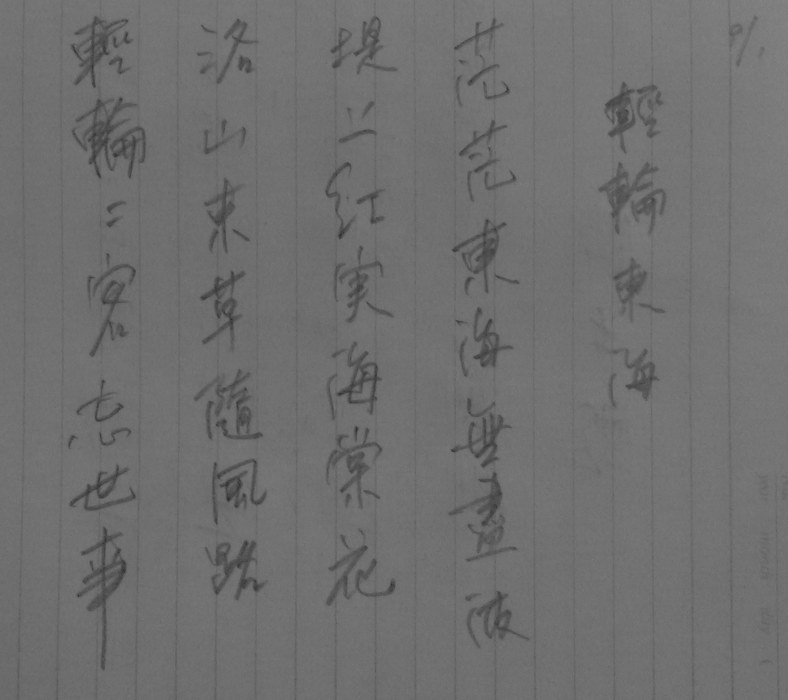 輕輪東海
茫茫東海無盡波
堤上紅実海棠花
洛山東草隨風路
輕輪二客忘世事